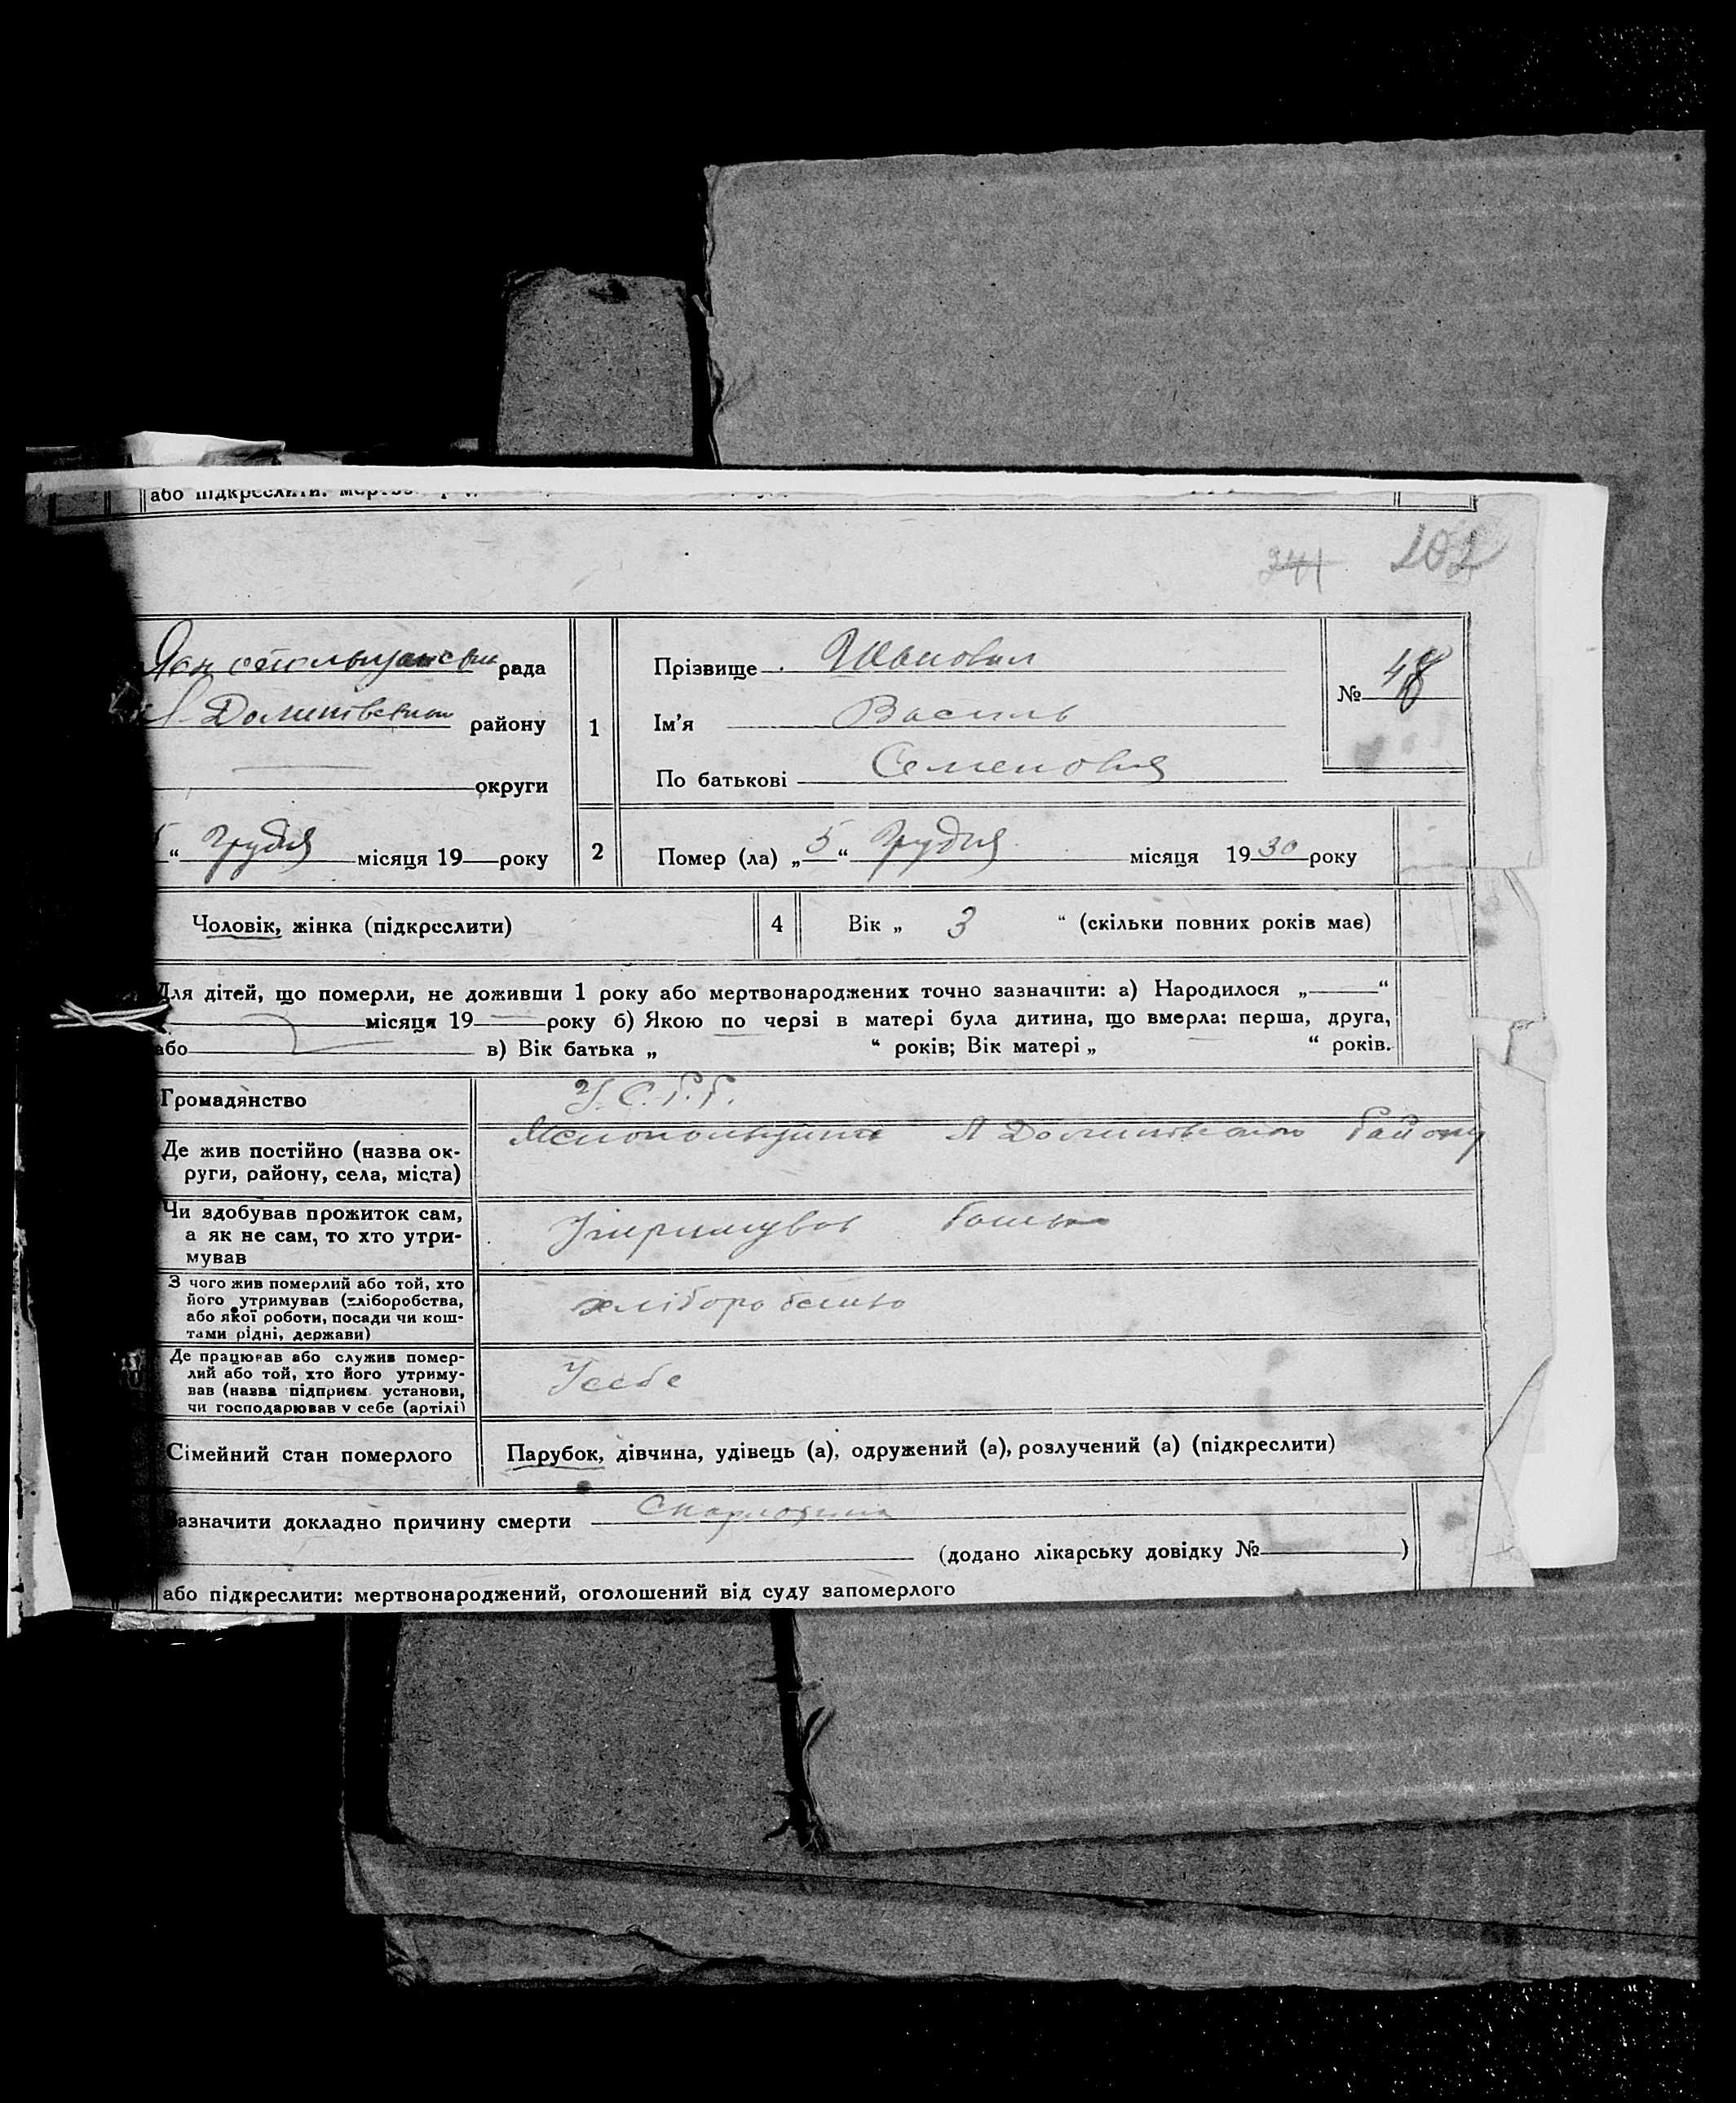 або підкреслити:
241 202
рада
Прізвище Шаповал
№ 48
району
1
Ім'я Василь
По батькові Семенович
округи
“ Грудня місяця 19 року
2
Помер (ла) „ 5 “ Грудня місяця 19 30 року
Чоловік, жінка (підкреслити)
4
Вік „ 3 “ (скільки повних років має)
Для дітей, що померли, не доживши 1 року або мертвонароджених точно зазначити: а) Народилося „ “
місяця 19 року б) Якою по черзі в матері була дитина, що вмерла: перша, друга,
або в) Вік батька „ “ років; Вік матері „ “ років.
Громадянство
У.С.Р.Р.
Де жив постійно (назва ок-
руги, району, села, міста)
району
Чи здобував прожиток сам,
а як не сам, то хто утри-
мував
Утримував батько
З чого жив померлий або той, хто
його утримував (хліборобства,
або якої роботи, посади чи кош-
тами рідні, держави)
хліборобство
Де працював або служив помер-
лий або той, хто його утриму-
вав (назва підприєм. установи,
чи господарював у себе (артілі)
У себе
Сімейний стан померлого
Парубок, дівчина, удівець (а), одружений (а), розлучений (а) (підкреслити)
Зазначити докладно причину смерти Скарлатина
(додано лікарську довідку № )
або підкреслити: мертвонароджений, оголошений від суду запомерлого